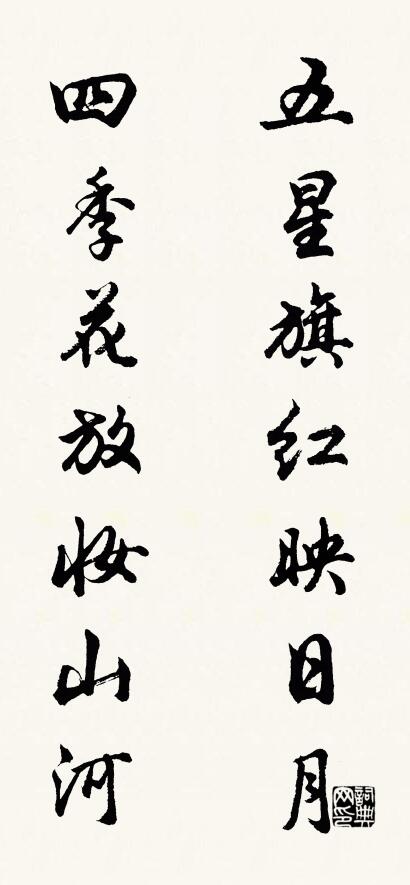 五星旗红映日月
四季花放妆山河
詞典网印